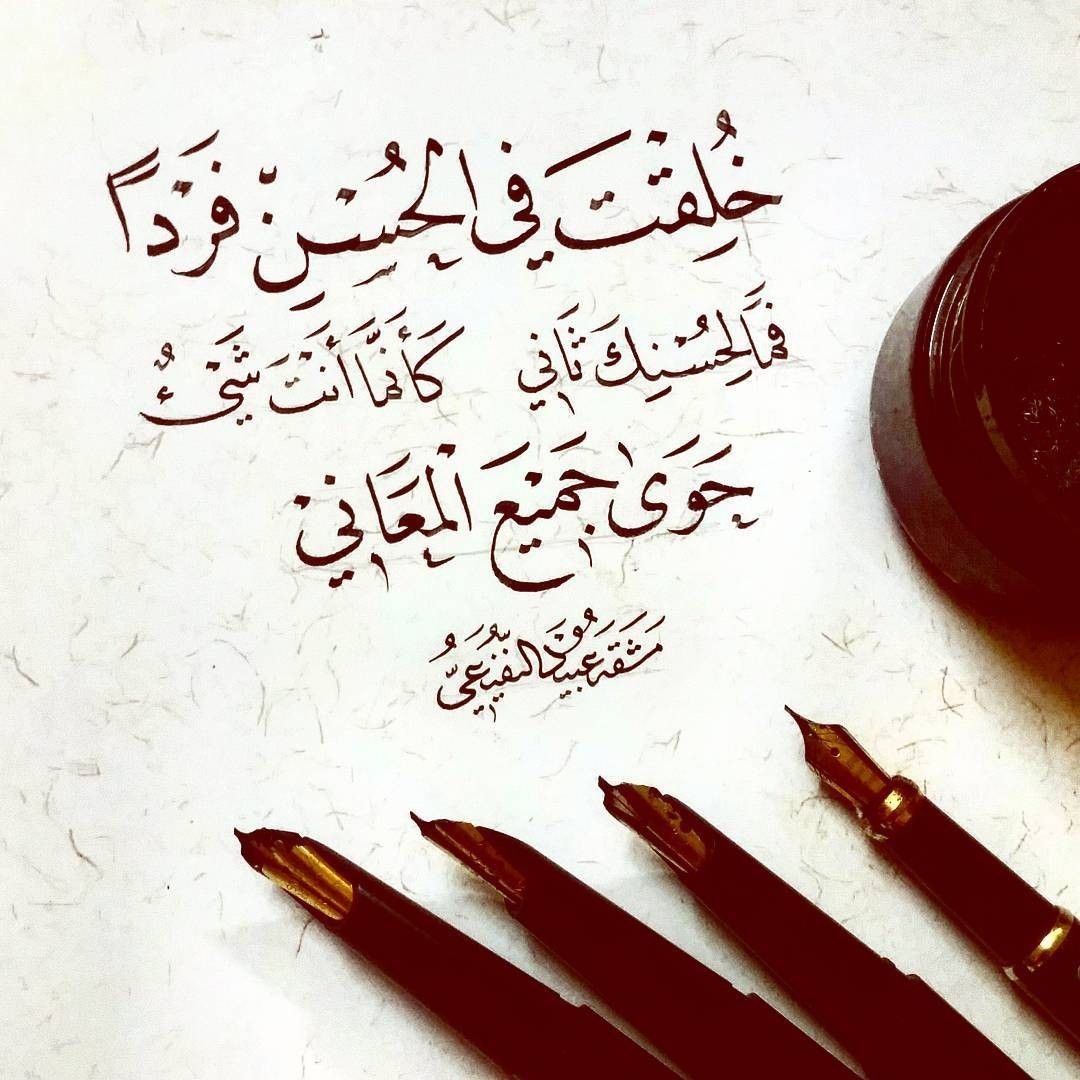 خُلِقْتَ في الحُسْنِ فَرْداً
فَمَا لِحُسْنِكَ ثَاني كَأَنَّمَا أَنْتَ شَيْءٌ
حَوَى جَمِيْعَ الْمَعَانيْ
مَشَقَهُ عبيد النفيعي